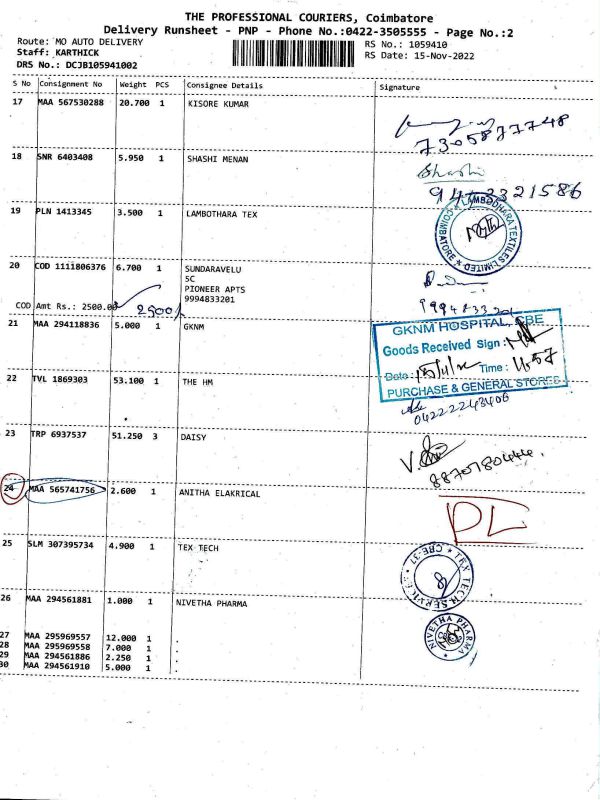 THE PROFESSIONAL COURIERS, Coimbatore
Delivery Runsheet - PNP - Phone No.:0422-3505555 - Page No.:2
Route: MO AUTO DELIVERY
RS No.: 1059410
Staff: KARTHICK
RS Date: 15-Nov-2022
DRS No.: DCJB105941002
S No Consignment No Weight PCS Consignee Details Signature
17 MAA 567530288 20.700 1 KISORE KUMAR
7305877748
18 SNR 6403408 5.950 1 SHASHI MENAN
Shashi
9443321586
19 PLN 1413345 3.500 1 LAMBOTHARA TEX
LAMBODHARA TEXTILES LIMITED
COIMBATORE
20 COD 1111806376 6.700 1 SUNDARAVELU
SC
PIONEER APTS
9994833201
COD Amt Rs.: 2500.00 2500/-
9994833201
21 MAA 294118836 5.000 1 GKNM
GKNM HOSPITAL, CBE
Goods Received Sign :
Date : 15/11/22 Time : 11.57
PURCHASE & GENERAL STORES
22 TVL 1869303 53.100 1 THE HM
04222243406
23 TRP 6937537 51.250 3 DAISY
8870780444.
24 MAA 565741756 2.600 1 ANITHA ELAKRICAL
DL
25 SLM 307395734 4.900 1 TEX TECH
TEX TECH SERVICES
CBE-37
26 MAA 294561881 1.000 1 NIVETHA PHARMA
NIVETHA PHARMA
27 MAA 295969557 12.000 1 .
28 MAA 295969558 7.000 1 .
29 MAA 294561886 2.250 1 .
30 MAA 294561910 5.000 1 .